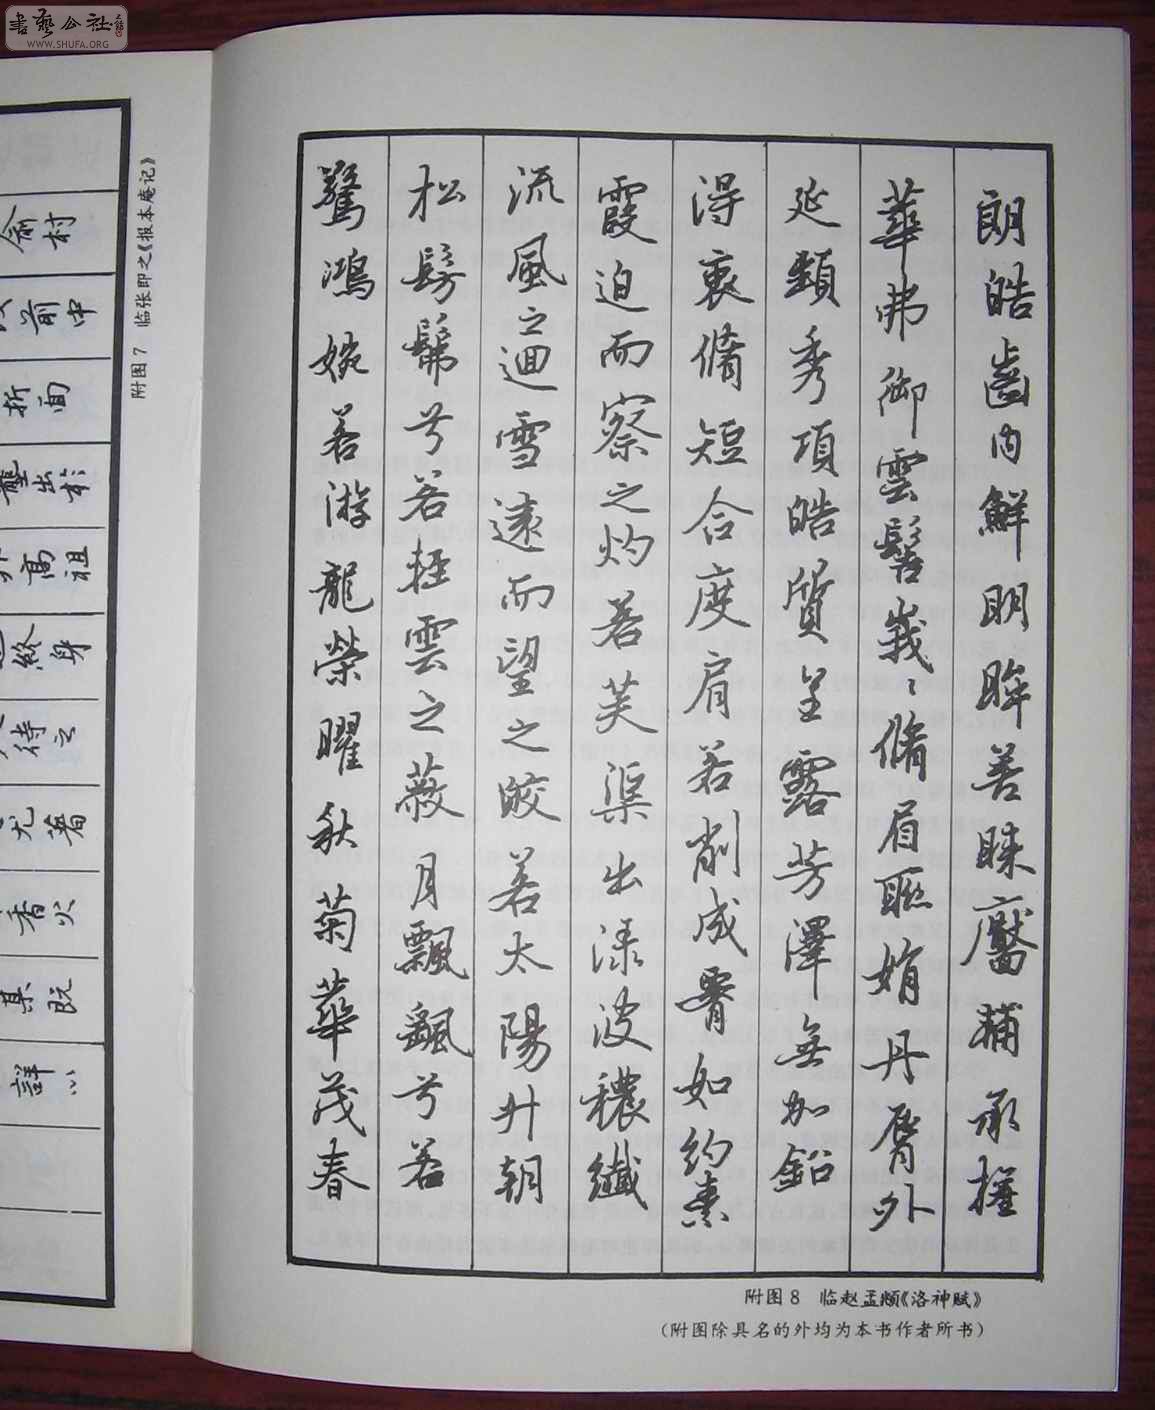 書藝公社
WWW.SHUFA.ORG
俞村
前中
折面
壟出於
高祖
終身
待之
尤著
香火
某既
詳
附图7 临张即之《报本庵记》
驚鴻婉若游龍榮曜秋菊華茂春
松髣髴兮若輕雲之蔽月飄颻兮若
流風之迴雪遠而望之皎若太陽升朝
霞迫而察之灼若芙渠出淥波穠纖
得衷脩短合度肩若削成腰如約素
延頸秀項皓質呈露芳澤無加鉛
華弗御雲髻峩〻脩眉聯娟丹脣外
朗皓齒内鮮明眸善睞靨輔承權
附图8 临赵孟頫《洛神赋》
(附图除具名的外均为本书作者所书)